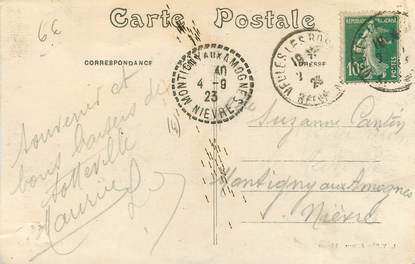 6€
Carte Postale
CORRESPONDANCE
MONTIGNY AUX AMOGNES
4-9
23
NIEVRE
VEULES LES ROSES
18
23
SEINE
REPUBLIQUE FRANÇAISE
10c
POSTES
Souvenir et
bons baisers de
Sotteville
Maurice
Suzanne
Montigny aux Amognes
Nièvre